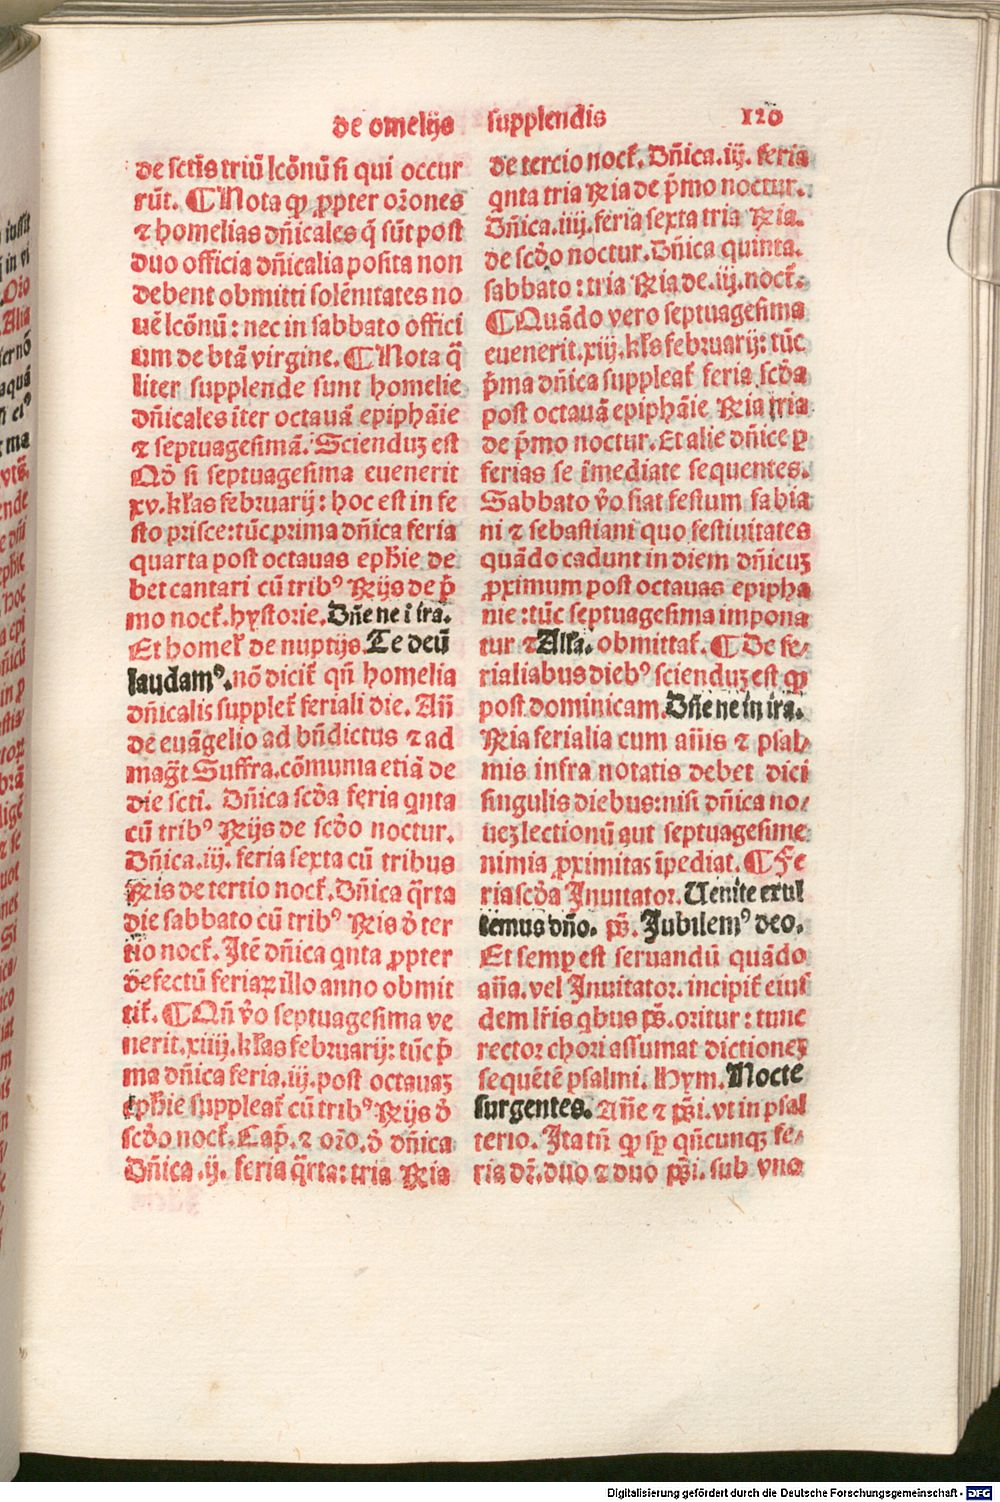 de omelijs supplendis 120
de sctīs triū lcōnū si qui occur
rūt. ¶ Nota ꝙ ꝓpter orōnes
⁊ homelias dn̄icales q̄ sūt post
duo officia dn̄icalia posita non
debent obmitti solēnitates no
uē lcōnū: nec in sabbato offici
um de btā virgine. ¶ Nota q̄
liter supplende sunt homelie
dn̄icales īter octauā epiphāie
⁊ septuagesimā. Scienduꝫ est
Qđ si septuagesima euenerit
xv. kl̄as februarij: hoc est in fe
sto prisce: tūc prima dn̄ica feria
quarta post octauas eph̄ie de
bet cantari cū tribꝰ R̄ijs de p̄
mo noct̄. hystorie. Dn̄e ne i ira.
Et homel̄ de nuptijs. Te deū
laudamꝰ. nō dicit̄ qn̄ homelia
dn̄icalis supplet̄ feriali die. An̄
de euāgelio ad bn̄dictus ⁊ ad
maḡt Suffra. cōmunia etiā de
die scti. Dn̄ica scđa feria qnta
cū tribꝰ R̄ijs de scđo noctur.
Dn̄ica .iij. feria sexta cū tribus
R̄is de tertio noct̄. Dn̄ica q̄rta
die sabbato cū tribꝰ R̄is đ ter
tio noct̄. Itē dn̄ica qnta ꝓpter
defectū feriaꝝ illo anno obmit
tit̄. ¶ Qn̄ v̄o septuagesima ve
nerit .xiiij. kl̄as februarij: tūc p̄
ma dn̄ica feria .iij. post octauaꝫ
eph̄ie suppleat̄ cū tribꝰ R̄ijs đ
scđo noct̄. Cap̄. ⁊ orō. đ dn̄ica
Dn̄ica .ij. feria q̄rta: tria R̄ia
de tercio noct̄. Dn̄ica .iij. feria
qnta tria R̄ia de p̄mo noctur.
Dn̄ica .iiij. feria sexta tria R̄ia.
de scđo noctur. Dn̄ica quinta.
sabbato: tria R̄ia de .iij. noct̄.
¶ Quādo vero septuagesima
euenerit .xiij. kl̄as februarij: tūc
p̄ma dn̄ica suppleat̄ feria scđa
post octauā epiphāie R̄ia tria
de p̄mo noctur. Et alie dn̄ice ꝑ
ferias se īmediate sequentes.
Sabbato v̄o fiat festum fabia
ni ⁊ sebastiani quo festiuitates
quādo cadunt in diem dn̄icuꝫ
ꝓximum post octauas epipha
nie: tūc septuagesima impona
tur ⁊ All̄a. obmittat̄. ¶ De fe⸗
rialiabus diebꝰ scienduꝫ est ꝙ
post dominicam. Dn̄e ne in ira.
R̄ia ferialia cum an̄is ⁊ psal⸗
mis infra notatis debet dici
singulis diebus: nisi dn̄ica no⸗
ueꝫ lectionū aut septuagesime
nimia ꝓximitas īpediat. ¶ Fe
ria scđa Inuitator. Uenite exul
temus dn̄o. ps̄. Jubilemꝰ deo.
Et semꝑ est seruandū quādo
an̄a. vel Inuitator. incipit̄ eius
dem lr̄is qbus ps̄. oritur: tunc
rector chori assumat dictioneꝫ
sequētē psalmi. Hym. Nocte
surgentes. An̄e ⁊ ps̄i. vt in psal
terio. Ita tn̄ ꝙ sꝑ qn̄cunqꝫ fe⸗
ria dr̄. duo ⁊ duo ps̄i. sub vna
Digitalisierung gefördert durch die Deutsche Forschungsgemeinschaft - DFG